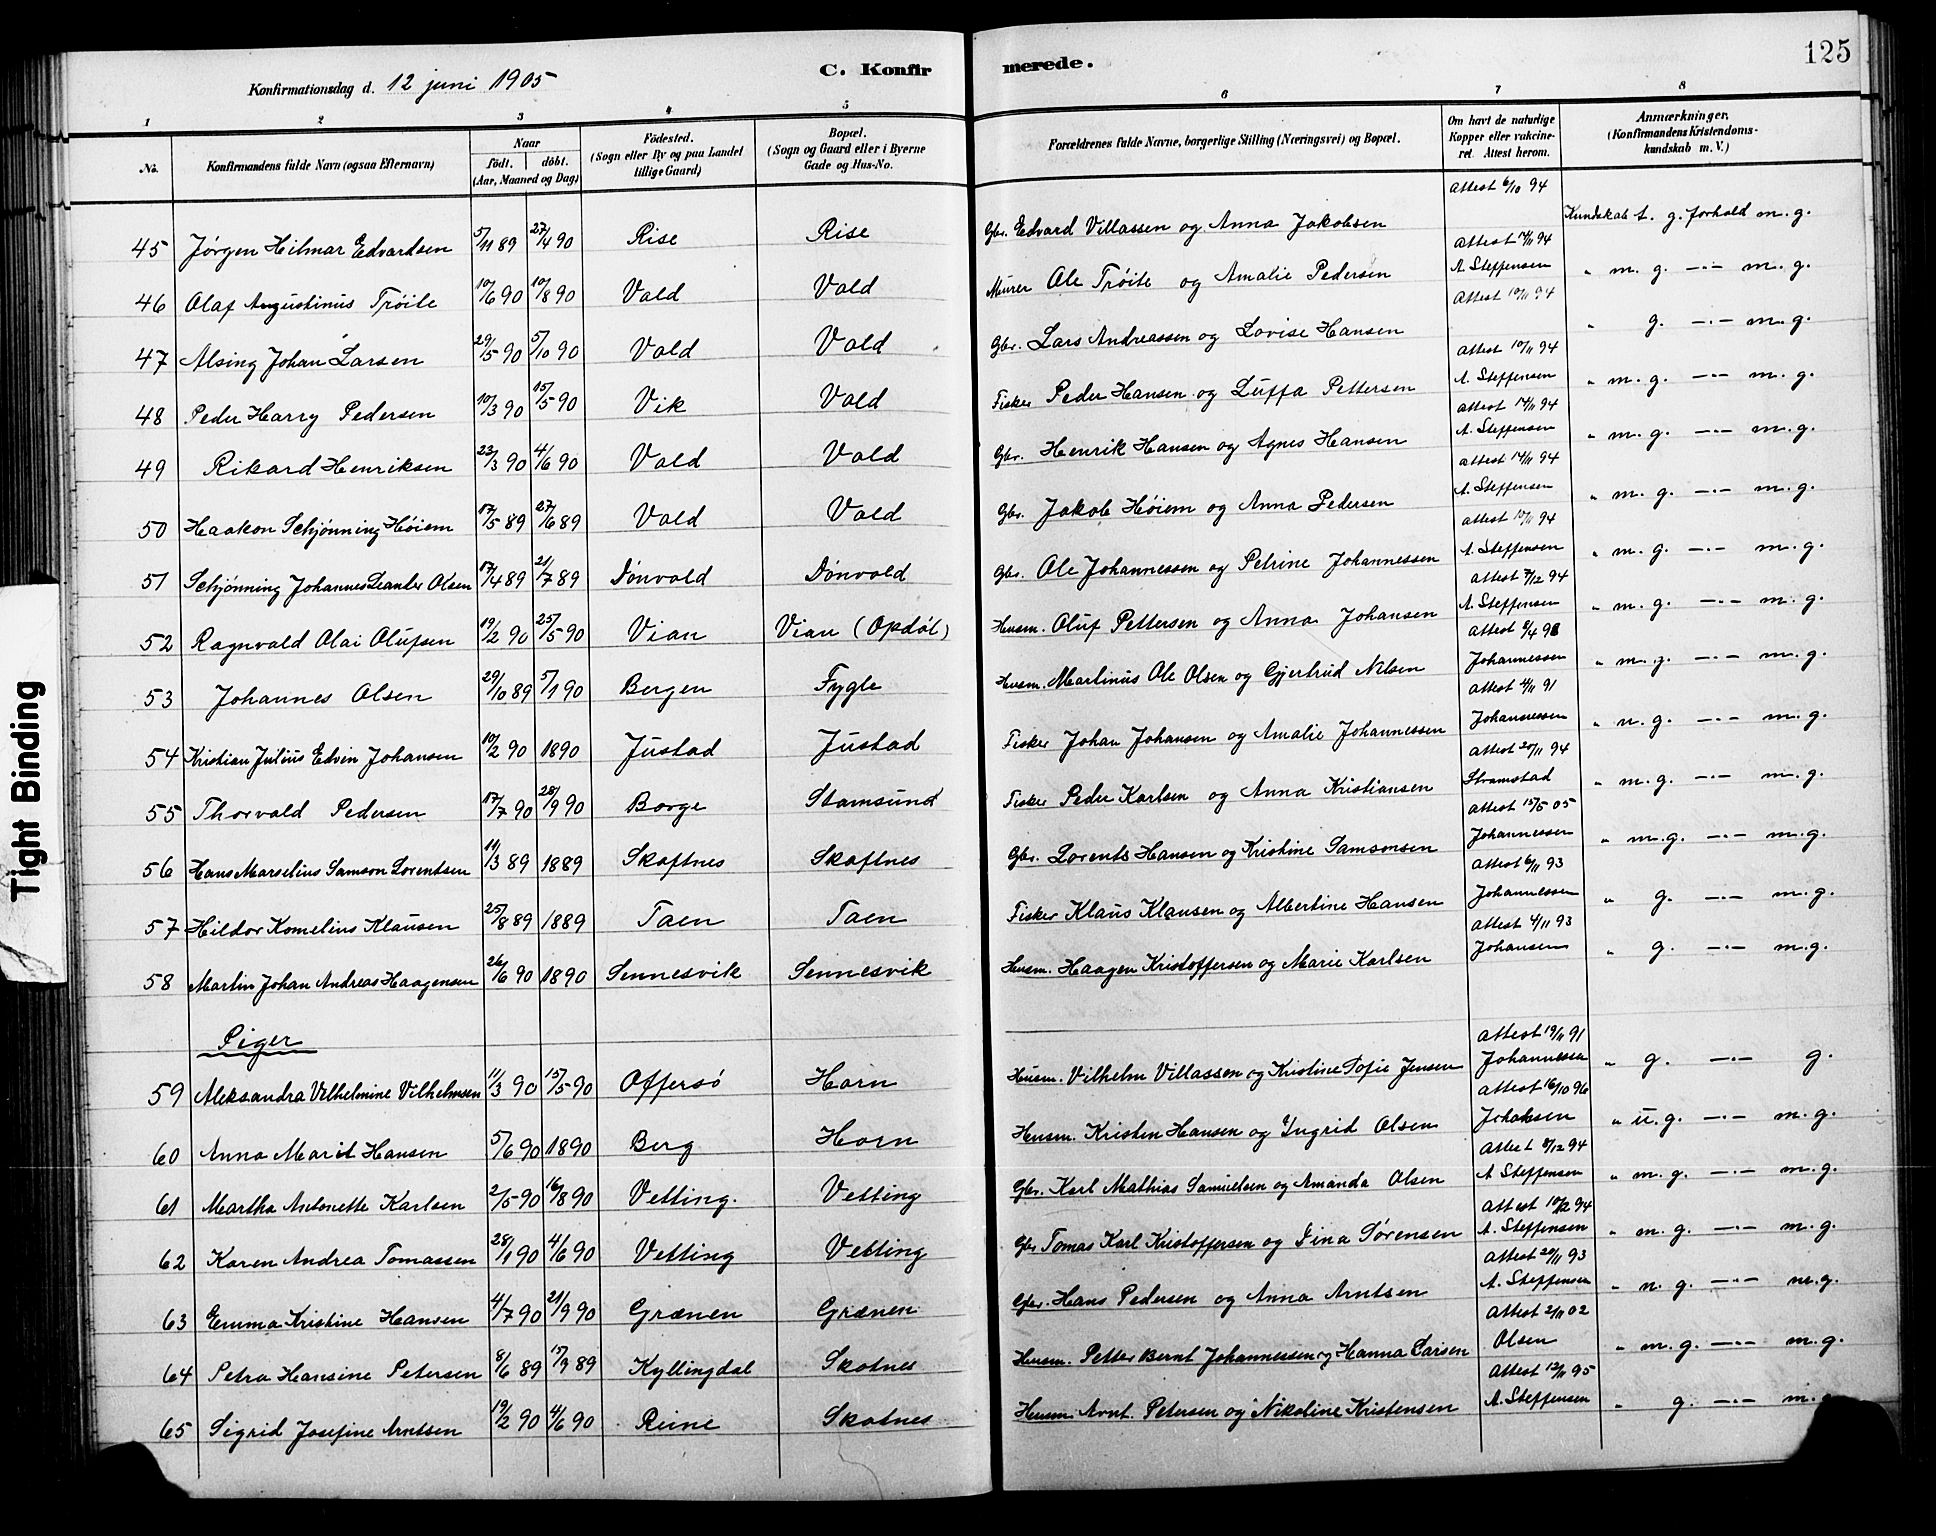 125
C. Konfirmerede.
Konfirmationsdag d. 12 juni 1905
1 2 3 4 5 6 7 8
No. Konfirmandens fulde Navn (ogsaa Efternavn) Naar födt. döbt. (Aar, Maaned og Dag) Födested. (Sogn eller By og paa Landet tillige Gaard) Bopæl. (Sogn og Gaard eller i Byerne Gade og Hus-No. Forældrenes fulde Navne, borgerlige Stilling (Næringsvei) og Bopæl. Om havt de naturlige Kopper eller vakcineret. Attest herom. Anmærkninger, (Konfirmandens Kristendomskundskab m. V.)
45 Jørgen Hilmar Edvardsen 5/11 89 27/4 90 Rise Rise Gbr. Edvard Villassen og Anna Jakobsen Attest 6/10 94 Kundskab t. g. forhold m. g.
46 Olaf Augustinus Trøite 10/6 90 10/8 90 Vold Vold Murer Ole Trøite og Amalie Pedersen Attest 14/11 94 A. Steffensen " m. g. —·— m. g.
47 Alsing Johan Larsen 29/5 90 5/10 90 Vold Vold Gbr. Lars Andreassen og Lovise Hansen Attest 10/11 94 " g. —·— m. g.
48 Peder Harry Pedersen 10/3 90 15/5 90 Vik Vold Fisker Peder Hansen og Luffa Pettersen Attest 10/11 94 A. Steffensen " m. g. —·— m. g.
49 Rikard Henriksen 23/3 90 4/6 90 Vold Vold Gbr. Henrik Hansen og Agnes Hansen Attest 14/11 94 A. Steffensen " m. g. —·— m. g.
50 Haakon Schjønning Høiem 17/5 89 27/6 89 Vold Vold Gbr. Jakob Høiem og Anna Pedersen Attest 14/11 94 A. Steffensen " m. g. —·— m. g.
51 Schjønning Johannes Leander Olsen 17/4 89 21/7 89 Dönvold Dönvold Gbr. Ole Johannessen og Petrine Johannessen Attest 10/11 94 A. Steffensen " m. g. —·— m. g.
52 Ragnvald Olai Olufsen 19/2 90 25/5 90 Vian Vian (Opdøl) Husm. Oluf Pettersen og Anna Johansen Attest 7/12 94 A. Steffensen " m. g. —·— m. g.
53 Johannes Olsen 29/10 89 5/1 90 Bergen Fygle Husm. Martinus Ole Olsen og Gjertrud Nilsen Attest Johannessen " m. g. —·— m. g.
54 Kristian Julius Edvin Johansen 10/2 90 1890 Justad Justad Fisker Johan Johansen og Amalie Johannessen Attest 4/11 91 Johannessen " n. g. —·— m. g.
55 Thorvald Pedersen 17/7 90 28/9 90 Borge Stamsund Fisker Peder Karlsen og Anna Kristiansen Attest 20/11 94 Strømstad " m. g. —·— m. g.
56 Hans Marselius Samson Lorentsen 19/3 89 1889 Skaftnes Skaftnes Gbr. Lorents Hansen og Kristine Samsonsen Attest 15/5 05 Johannessen " m. g. —·— m. g.
57 Hildor Kornelius Klausen 25/8 89 1889 Taen Taen Fisker Klaus Klausen og Albertine Hansen Attest 6/11 93 Johannessen " g. —·— m. g.
58 Martin Johan Andreas Haagensen 26/6 90 1890 Sennesvik Sennesvik Husm. Haagen Kristoffersen og Marie Karlsen Attest 4/11 93 Johansen " g. —·— m. g.
Piger
59 Aleksandra Vilhelmine Vilhelmsen 11/3 90 15/5 90 Offersö Horn Husm. Vilhelm Villassen og Kristine Sofie Jensen Attest 19/11 91 Johannessen " g. —·— g.
60 Anna Marit Hansen 5/6 90 1890 Berg Horn Husm. Kristen Hansen og Ingrid Olsen Attest 16/10 96 Johansen " u. g. —·— m. g.
61 Martha Antonette Karlsen 2/5 90 16/8 90 Vetting. Vetting Gbr. Karl Mathias Samuelsen og Amanda Olsen Attest 8/12 94 A Steffensen " m. g. —·— m. g.
62 Karen Andrea Tomassen 28/1 90 4/6 90 Vetting Vetting Gbr Tomas Karl Kristoffersen og Sina Sørensen Attest 10/12 94 A. Steffensen " m. g. —·— m. g.
63 Emma Kristine Hansen 4/7 90 21/9 90 Grænen Grænen Gbr. Hans Pedersen og Anna Arntsen Attest 20/11 93 A. Steffensen " n. g. —·— m. g.
64 Petra Hansine Petersen 8/6 89 15/9 89 Kyllingdal Skotnes Husm. Petter Bernt Johannessen og Hanna Larsen Attest 2/11 02 Olsen " m. g. —·— m. g.
65 Sigrid Josefine Arntsen 19/2 90 4/6 90 Reine Skotnes Husm. Arnt Petersen og Nikoline Kristensen Attest 12/11 95 A. Steffensen " g. —·— m. g.
Tight Binding